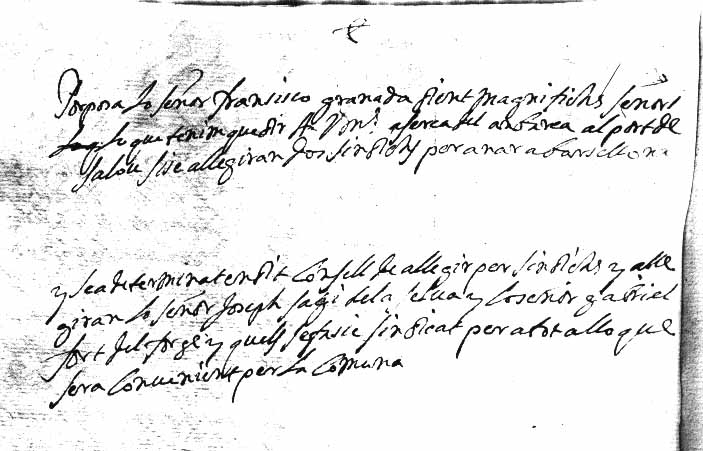 Porposa lo señor fransisco granada dient magnifichs señors
que tenim que dir a Vm.s aserca del anbarca al port de
salou si se allegiran dos sindichs per anar a barsellona
y sea determinat en dit Consell de allegir per sindichs y alle
giran lo señor Joseph sagi de la selva y lo señor gabriel
fort del forge y quells se fasie sindicat per a tot allo que
sera Convenient per La Comuna